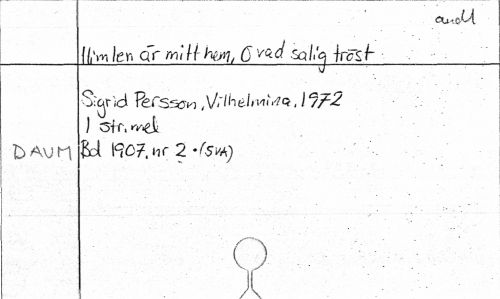 andl
Himlen är mitt hem, O vad salig tröst
Sigrid Persson, Vilhelmina, 1972
1 str. mel
DAUM Bd 1907. nr 2 • (SVA)